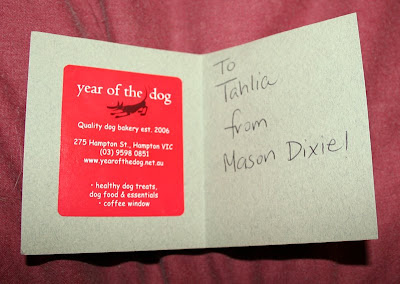 year of the dog
Quality dog bakery est. 2006
275 Hampton St., Hampton VIC
(03) 9598 0851
www.yearofthedog.net.au
• healthy dog treats,
dog food & essentials
• coffee window
To
Tahlia
from
Mason Dixie!